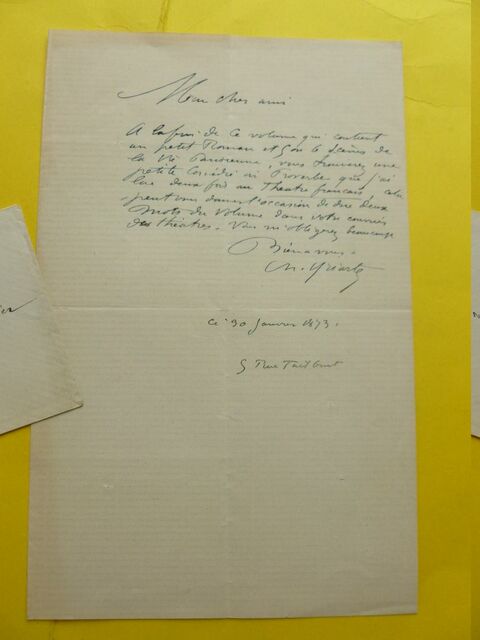 Mon cher ami
A la fin de ce volume qui contient
un petit Roman et 5 ou 6 scènes de
la Vie Parisienne, vous trouverez une
petite Comédie ou Proverbe que j'ai
lue deux fois au Théatre français, cela
peut vous donner l'occasion de dire deux
mots du volume dans votre courrier
des théâtres. Vous m'obligerez beaucoup
Bien a vous.
Ch. Yriarte
Ce 30 Janvier 1873.
5 Rue Taitbout